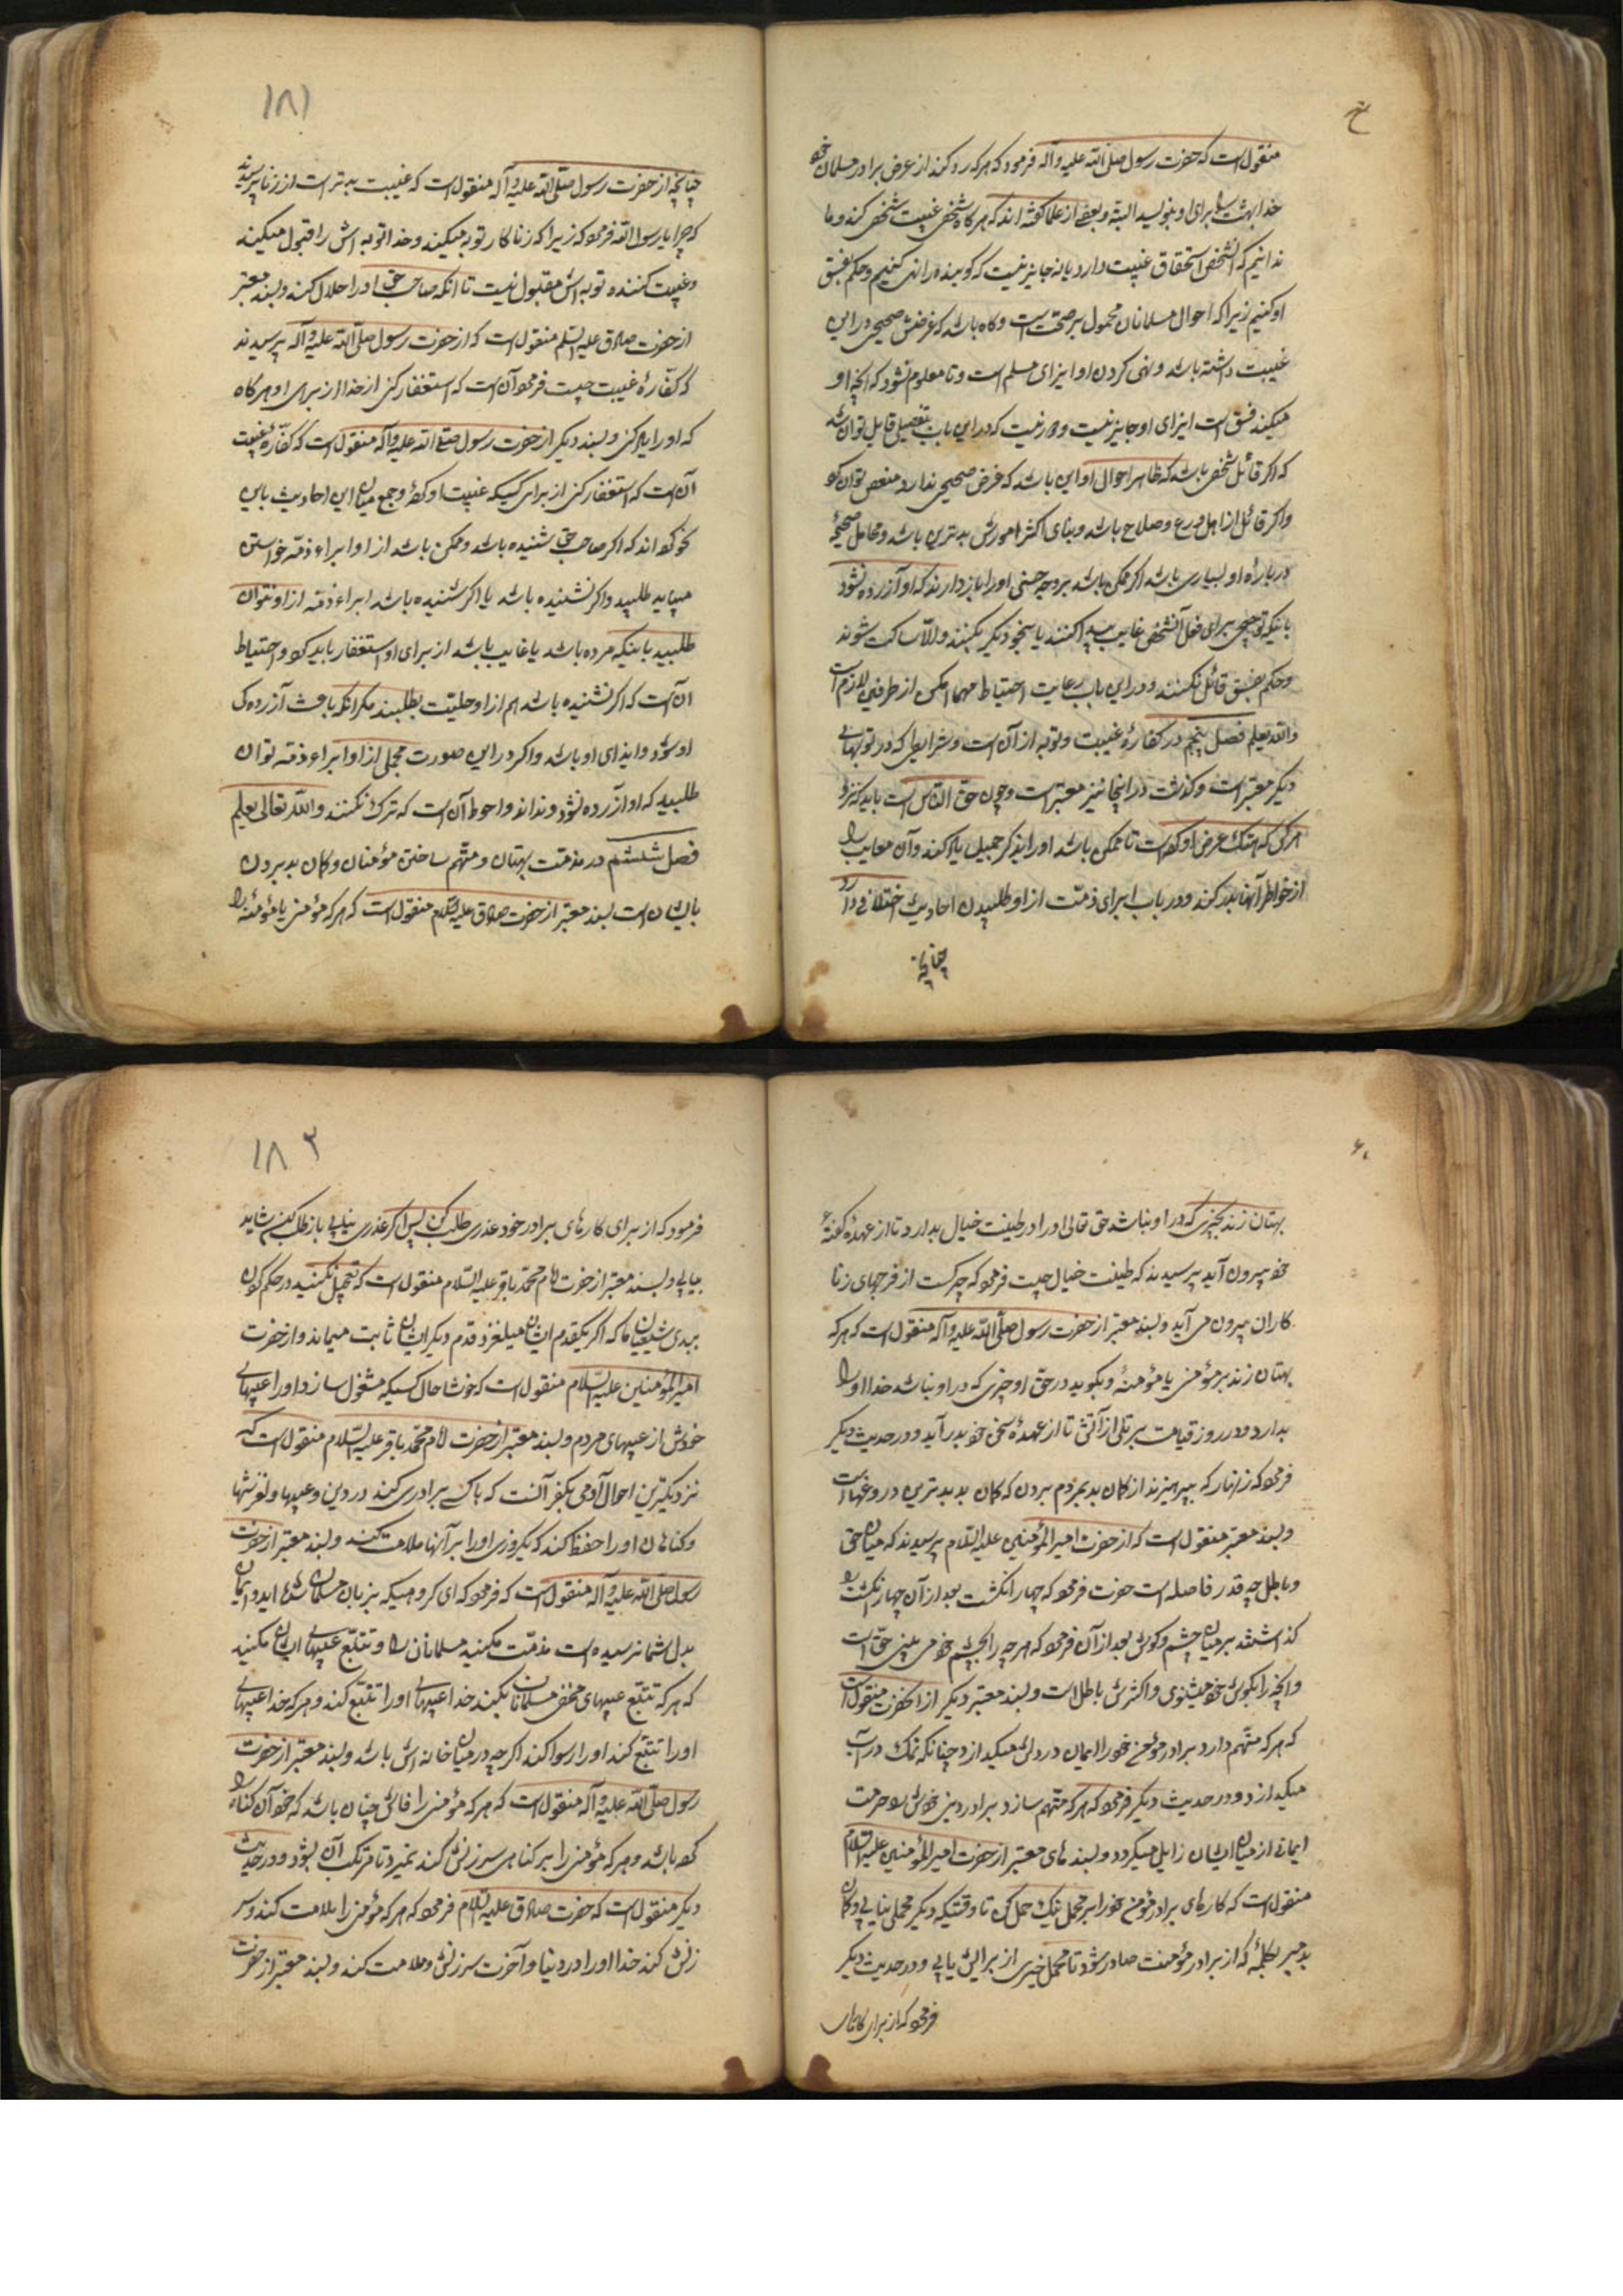 منقول است که حضرت رسول صلی الله علیه و آله فرمود که هر که رد کند از عرض برادر مسلمان خود
خدا بهشت را برای او بنویسد البته و بعضی از علما گفته اند که هر گاه شخصی غیبت شخصی کند و ما
ندانیم که آن شخص استحقاق غیبت دارد یا نه جایز نیست که گوینده را نهی کنیم و حکم بفسق
او کنیم زیرا که احوال مسلمانان محمول بر صحت است و گاه باشد که غرضش صحیحی در این
غیبت داشته باشد و نهی کردن او ایذای مسلم است و تا معلوم نشود که آنچه او
میکند فسق است ایذای او جایز نیست و دور نیست که در این باب بتفصیلی قایل توان شد
که اگر قائل شخصی باشد که ظاهر احوال او این باشد که غرض صحیحی ندارد منعش توان کرد
و اگر قائل از اهل ورع و صلاح باشد و بنای اکثر امورش بدترین باشد و محامل صحیحهٔ
درباره او بسیاری باشد اگر ممکن باشد بر وجه حسنی او را باز دارند که او آزرده نشود
یا نیکو توجیهی برای فعل آنشخص غایب پیدا کنند یا سخن دیگر بکنند و الّا ساکت شوند
و حکم بفسق قائل نکنند و در این باب رعایت احتیاط مهما امکن از طرفین لازم است
والله یعلم فصل پنجم در کفارهٔ غیبت و توبه از آن است و شرایطی که در توبهای
دیگر معتبر است و گذشت در اینجا نیز معتبر است و چون حق الناس است باید که نزد
هر کس که هتک عرض او کرده است تا ممکن باشد او را بذکر جمیل یاد کند و آن معایب را
از خواطر آنها بدر کند و در باب ابرای ذمّت از او طلبیدن احادیث اختلافی دارد
چنانچه
۱۸۱
چنانچه از حضرت رسول صلّی الله علیه و آله منقول است که غیبت بدتر است از زنا پرسیدند
که چرا یا رسول الله فرمود که زیرا که زناکار توبه میکند و خدا توبه اش را قبول میکند
و غیبت کننده توبه اش مقبول نیست تا آنکه صاحب حق او را حلال کند و بسند معتبر
از حضرت صادق علیه السّلم منقول است که از حضرت رسول صلّی الله علیه و آله پرسیدند
که کفّارهٔ غیبت چیست فرمود آن است که استغفار کنی از خدا از برای او هر گاه
که او را یاد کنی و بسند دیگر از حضرت رسول صلی الله علیه و آله منقول است که کفّارهٔ غیبت
آن است که استغفار کنی از برای کسیکه غیبت او کرده و جمع میان این احادیث باین
نحو کرده اند که اگر صاحب حق شنیده باشد و ممکن باشد از او ابراء ذمّه خواستن
میباید طلبید و اگر نشنیده باشد یا اگر شنیده باشد ابراء ذمّه از او نتوان
طلبید باینکه مرده باشد یا غایب باشد از برای او استغفار باید کرد و احتیاط
آن است که اگر نشنیده باشد هم از او حلّیت بطلبند مگر آنکه باعث آزردگی
او شود و ایذای او باشد و اگر در این صورت مجملی از او ابراء ذمّه توان
طلبید که او آزرده نشود و نداند و احوط آن است که ترک نکنند و الله تعالی یعلم
فصل ششم در مذمّت بهتان و متّهم ساختن مؤمنان و گمان بد بردن
بایشان است بسند معتبر از حضرت صادق علیه السّلام منقول است که هر که مؤمنی یا مؤمنهٔ را
بهتان زند بچیزی که در او نباشد حق تعالی او را در طینت خبال بدارد تا از عهدهٔ گفتهٔ
خود بیرون آید پرسیدند که طینت خبال چیست فرمود که چرکست از فرجهای زنا
کاران بیرون می آید و بسند معتبر از حضرت رسول صلّی الله علیه و آله منقول است که هر که
بهتان زند بر مؤمنی یا مؤمنهٔ و بگوید در حق او چیزی که در او نباشد خدا او را
بدارد در روز قیامت بر تلی از آتش تا از عهدهٔ سخن خود بدر آید و در حدیث دیگر
فرمود که زنهار که بپرهیزند از گمان بد بمردم بردن که گمان بد بدترین دروغهاست
و بسند معتبر منقول است که از حضرت امیر المؤمنین علیه السّلام پرسیدند که میان حق
و باطل چه قدر فاصله است حضرت فرمود که چهار انگشت بعد از آن چهار انگشت را
گذاشتند بر میان چشم و گوش بعد از آن فرمود که هر چه را بچشم خود می بینی حق است
و آنچه را بگوش خود میشنوی و اکثرش باطل است و بسند معتبر دیگر از آنحضرت منقول است
که هر که متّهم دارد برادر مؤمن خود را ایمان در دلش میگدازد چنانکه نمک در آب
میگدازد و در حدیث دیگر فرمود که هر که متّهم سازد برادر دینی خویش را حرمت
ایمانی از میان ایشان زایل میگردد و بسند های معتبر از حضرت امیر المؤمنین علیه السّلام
منقول است که کارهای برادر مؤمن خود را بر محمل نیک حمل کن تا وقتیکه دیگر محملی نیابی و گمان
بد مبر بکلمهٔ که از برادر مؤمنت صادر شود تا محمل خیری از برایش یابی و در حدیث دیگر
فرمود که از برای کارهای
۱۸۳
فرمود که از برای کارهای برادر خود عذری طلب کن پس اگر عذری نیابی باز طلب کن شاید
بیابی و بسند معتبر از حضرت امام محمّد باقر علیه السّلام منقول است که تعجیل نکنید در حکم کردن
ببدی شیعیان ما که اگر یکقدم ایشان میلغزد قدم دیگر ایشان ثابت میماند و از حضرت
امیر المؤمنین علیه السّلام منقول است که خوشا حال کسیکه مشغول سازد او را عیبهای
خودش از عیبهای مردم و بسند معتبر از حضرت امام محمّد باقر علیه السّلام منقول است که
نزدیکترین احوال آدمی بکفر آنست که با کسی برادری کند در دین و عیبها و لغزشها
و گناهان او را حفظ کند که یکروزی او را بر آنها ملامت کند و بسند معتبر از حضرت
رسول صلّی الله علیه و آله منقول است که فرمود که ای گروهیکه بزبان مسلمان شده اید و ایمان
بدل شما نرسیده است مذمّت مکنید مسلمانان را و تتبّع عیبهای ایشان مکنید
که هر که تتبّع عیبهای مخفی مسلمانان بکند خدا عیبهای او را تتبّع کند و هر که خدا عیبهای
او را تتبّع کند او را رسوا کند اگر چه در میان خانه اش باشد و بسند معتبر از حضرت
رسول صلّی الله علیه و آله منقول است که هر که مؤمنی را فاش چنان باشد که خود آن گناه را
کرده باشد و هر که مؤمنی را بر گناهی سرزنش کند نمیرد تا مرتکب آن بشود و در حدیث
دیگر منقول است که حضرت صادق علیه السّلام فرمود که هر که مؤمنی را ملامت کند و سر
زنش کند خدا او را در دنیا و آخرت سرزنش و ملامت کند و بسند معتبر از حضرت